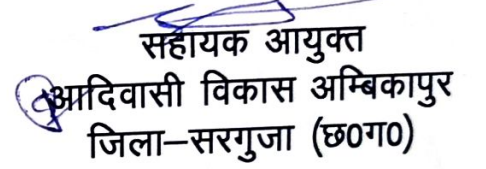 सहायक आयुक्त
आदिवासी विकास अम्बिकापुर
जिला–सरगुजा (छ0ग0)